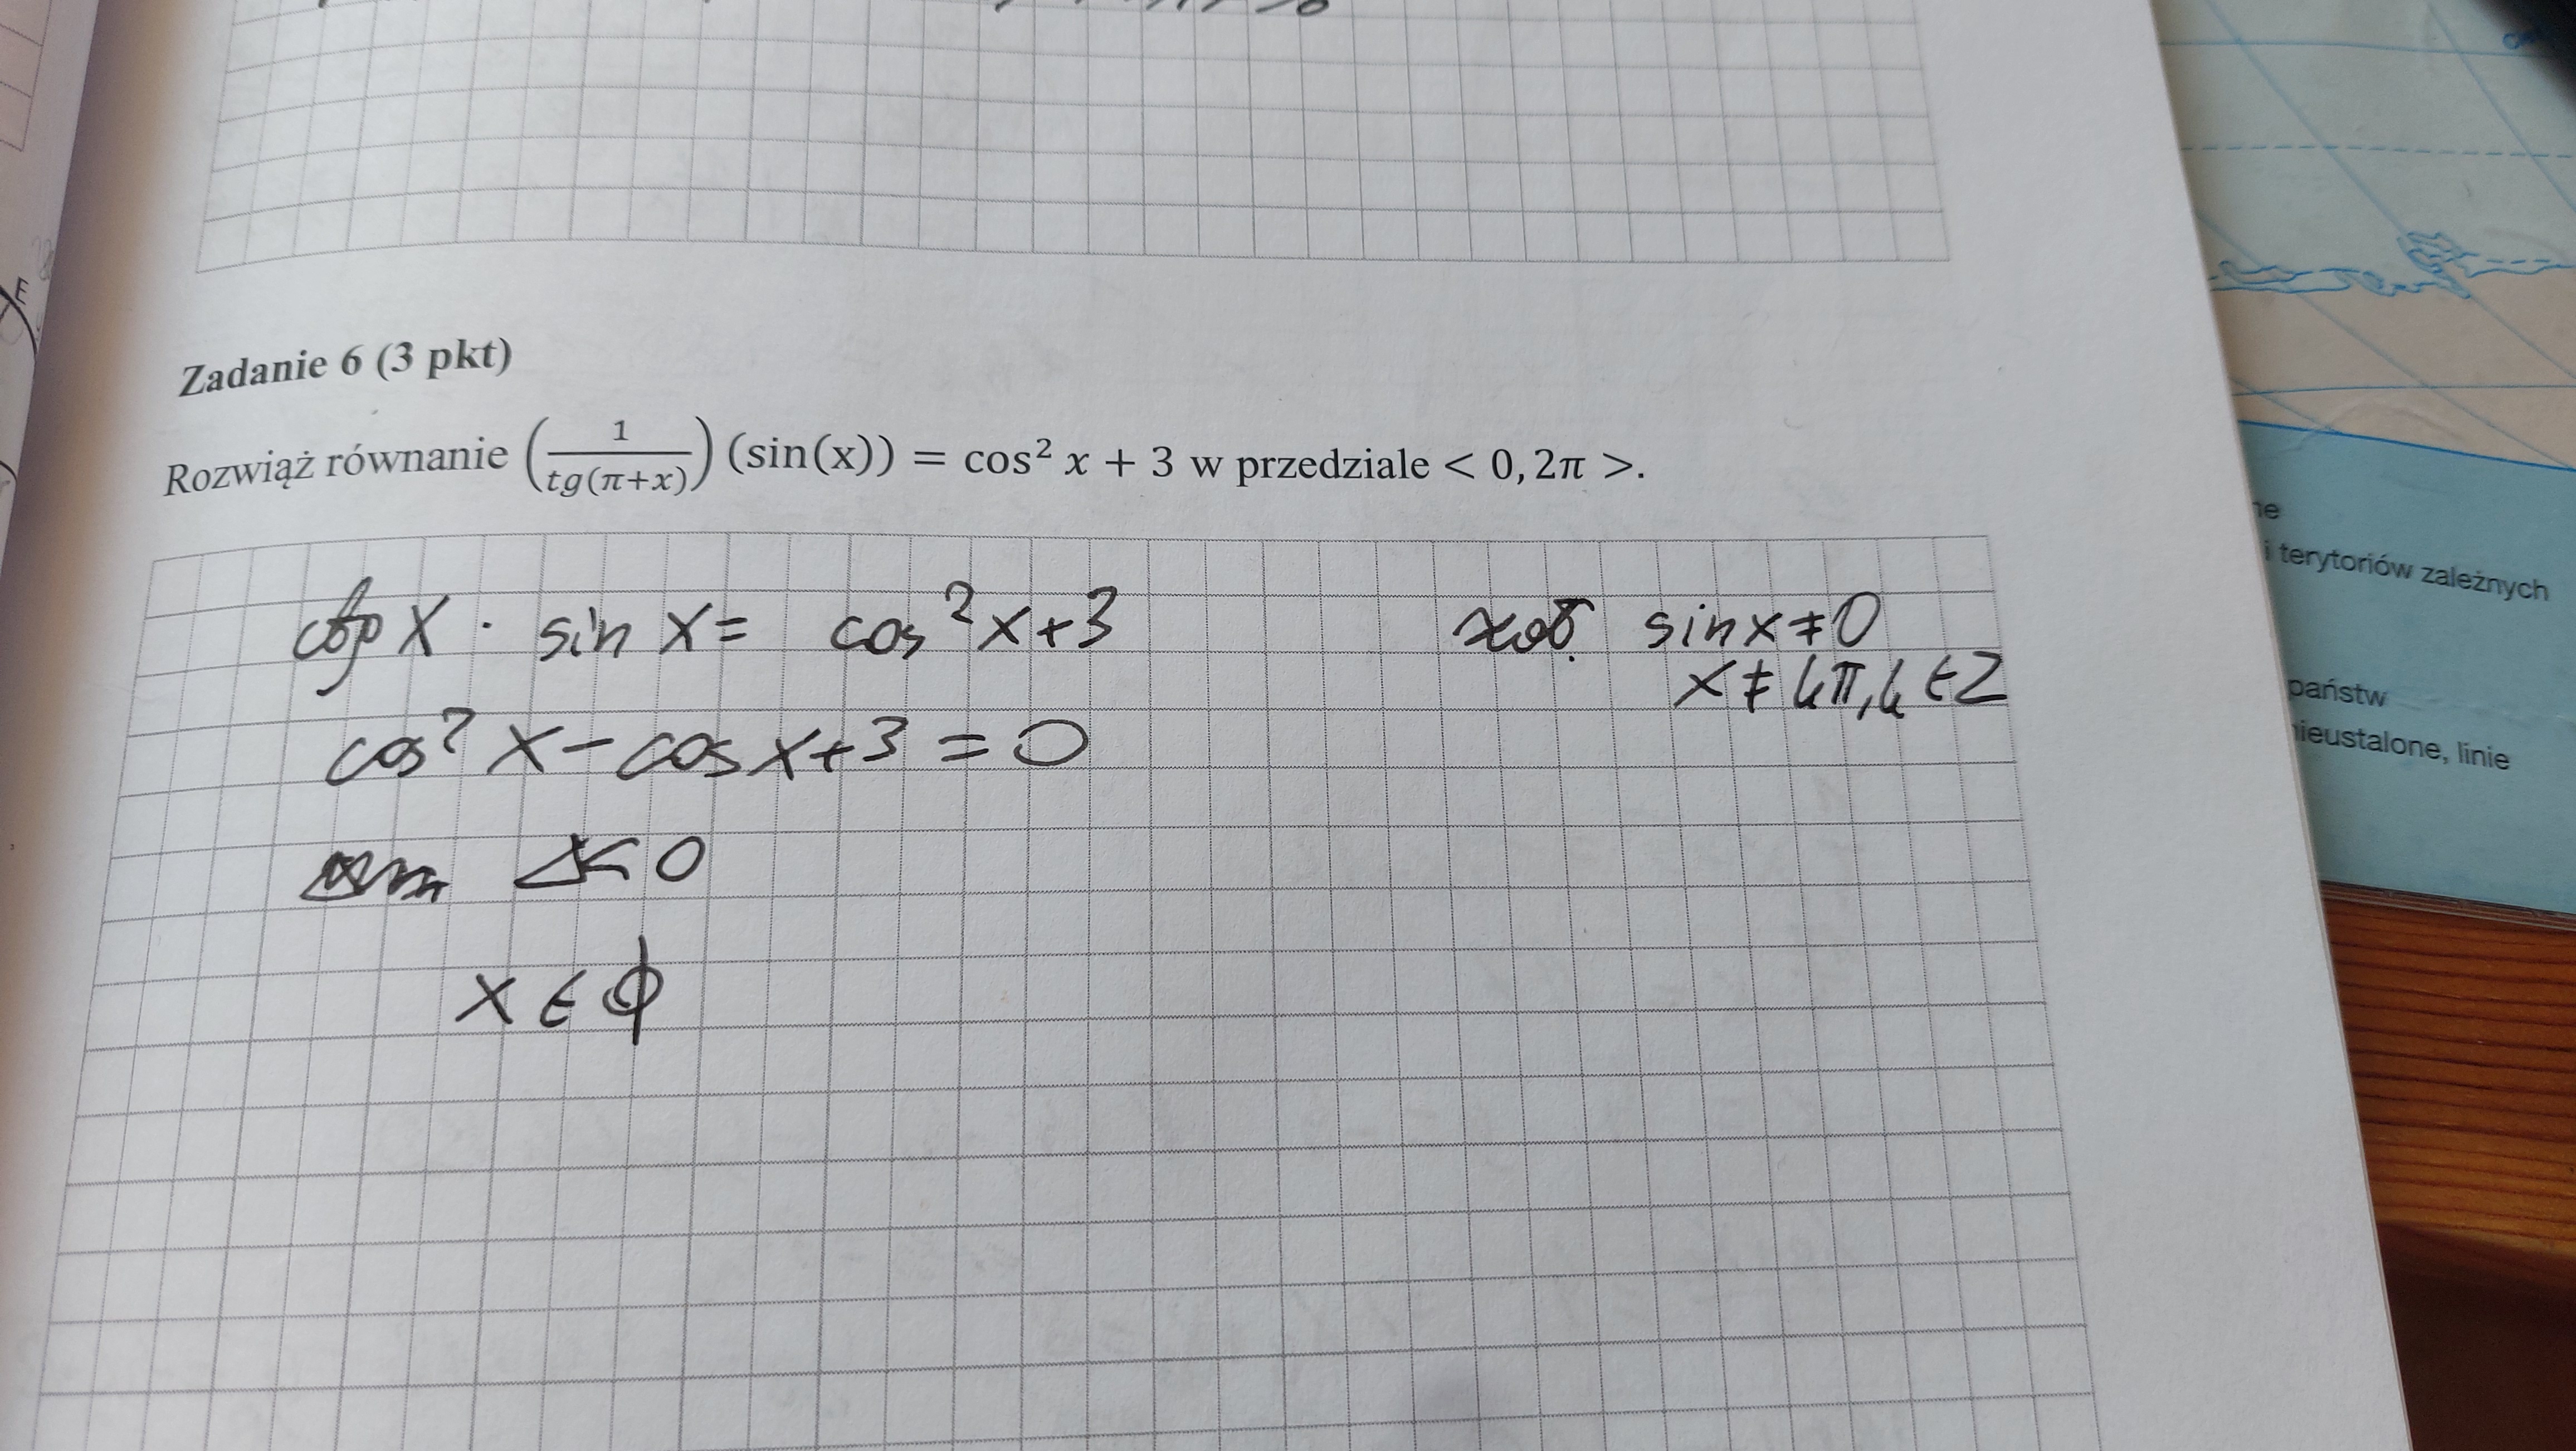 E
Zadanie 6 (3 pkt)
Rozwiąż równanie (1/tg(π+x)) (sin(x)) = cos² x + 3 w przedziale < 0, 2π >.
ctg x · sin x = cos² x + 3
zał. sin x ≠ 0
x ≠ kπ, k ∈ Z
cos² x - cos x + 3 = 0
Δ < 0
x ∈ ∅
ne
i terytoriów zależnych
państw
nieustalone, linie